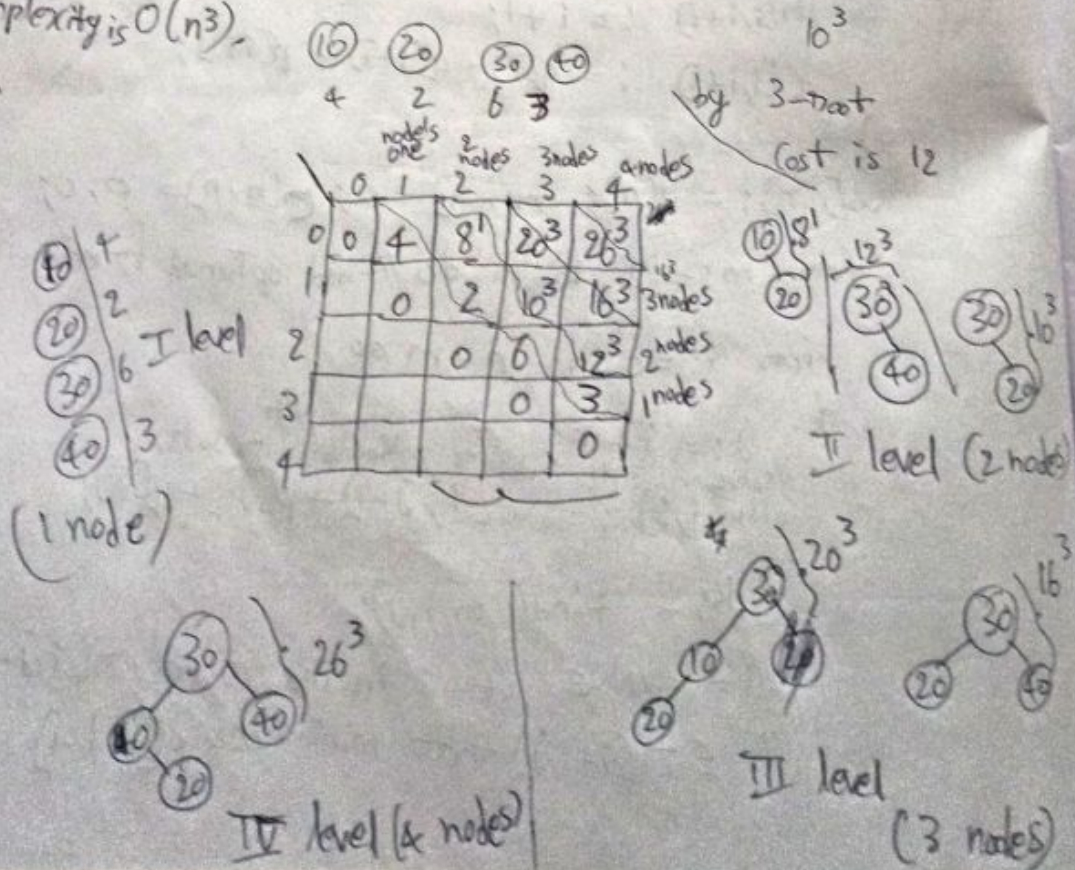 plexity is O(n³).
10 20 30 40
4 2 6 3
10³
by 3-root
Cost is 12
nodes one 2 nodes 3 nodes 4 nodes
0 1 2 3 4
0 0 4 8¹ 20³ 26³
1 0 2 10³ 16³ 3 nodes
2 0 6 12³ 2 nodes
3 0 3 1 nodes
4 0
10 4
20 2
30 6
40 3
I level
(1 node)
10 8¹
20
12³
30
40
30 10³
20
II level (2 node)
30 26³
10 40
20
IV level (4 nodes)
30 20³
10
20
30 16³
20 40
III level
(3 nodes)